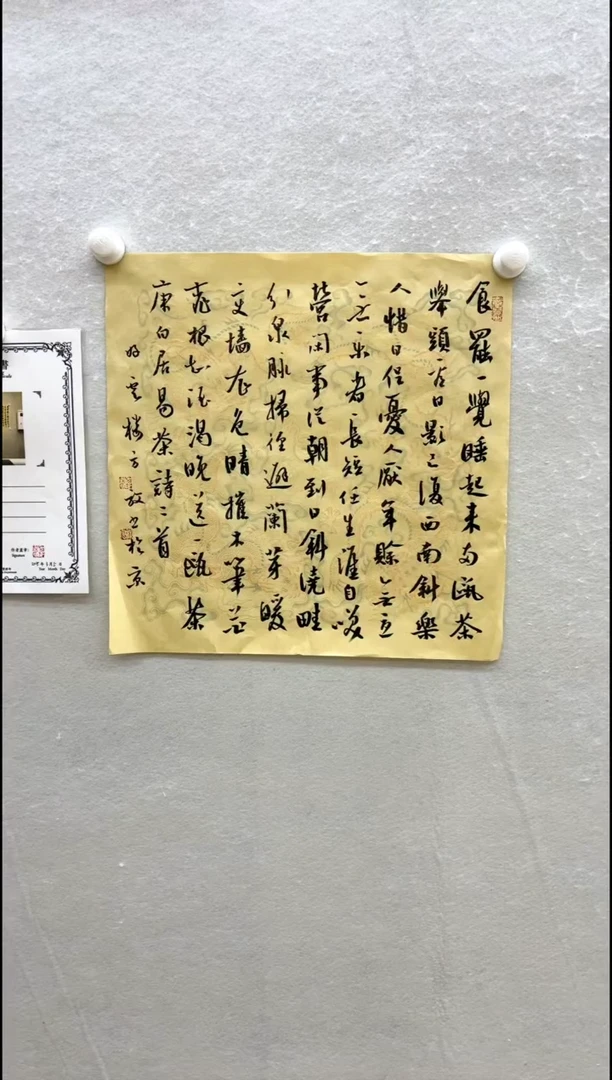 食罷一覺睡起來兩甌茶
舉頭看日影已復西南斜樂
人惜日促憂人厭年賒無
無樂者長短任生涯自笑
營閑事從朝到日斜澆畦
引泉脈掃徑避蘭芽暖
變墻衣色晴催木筆花
桃根知酒渴晚送一甌茶
唐白居易茶詩二首
雲樓方書於京
書
Signature
Year Month Day